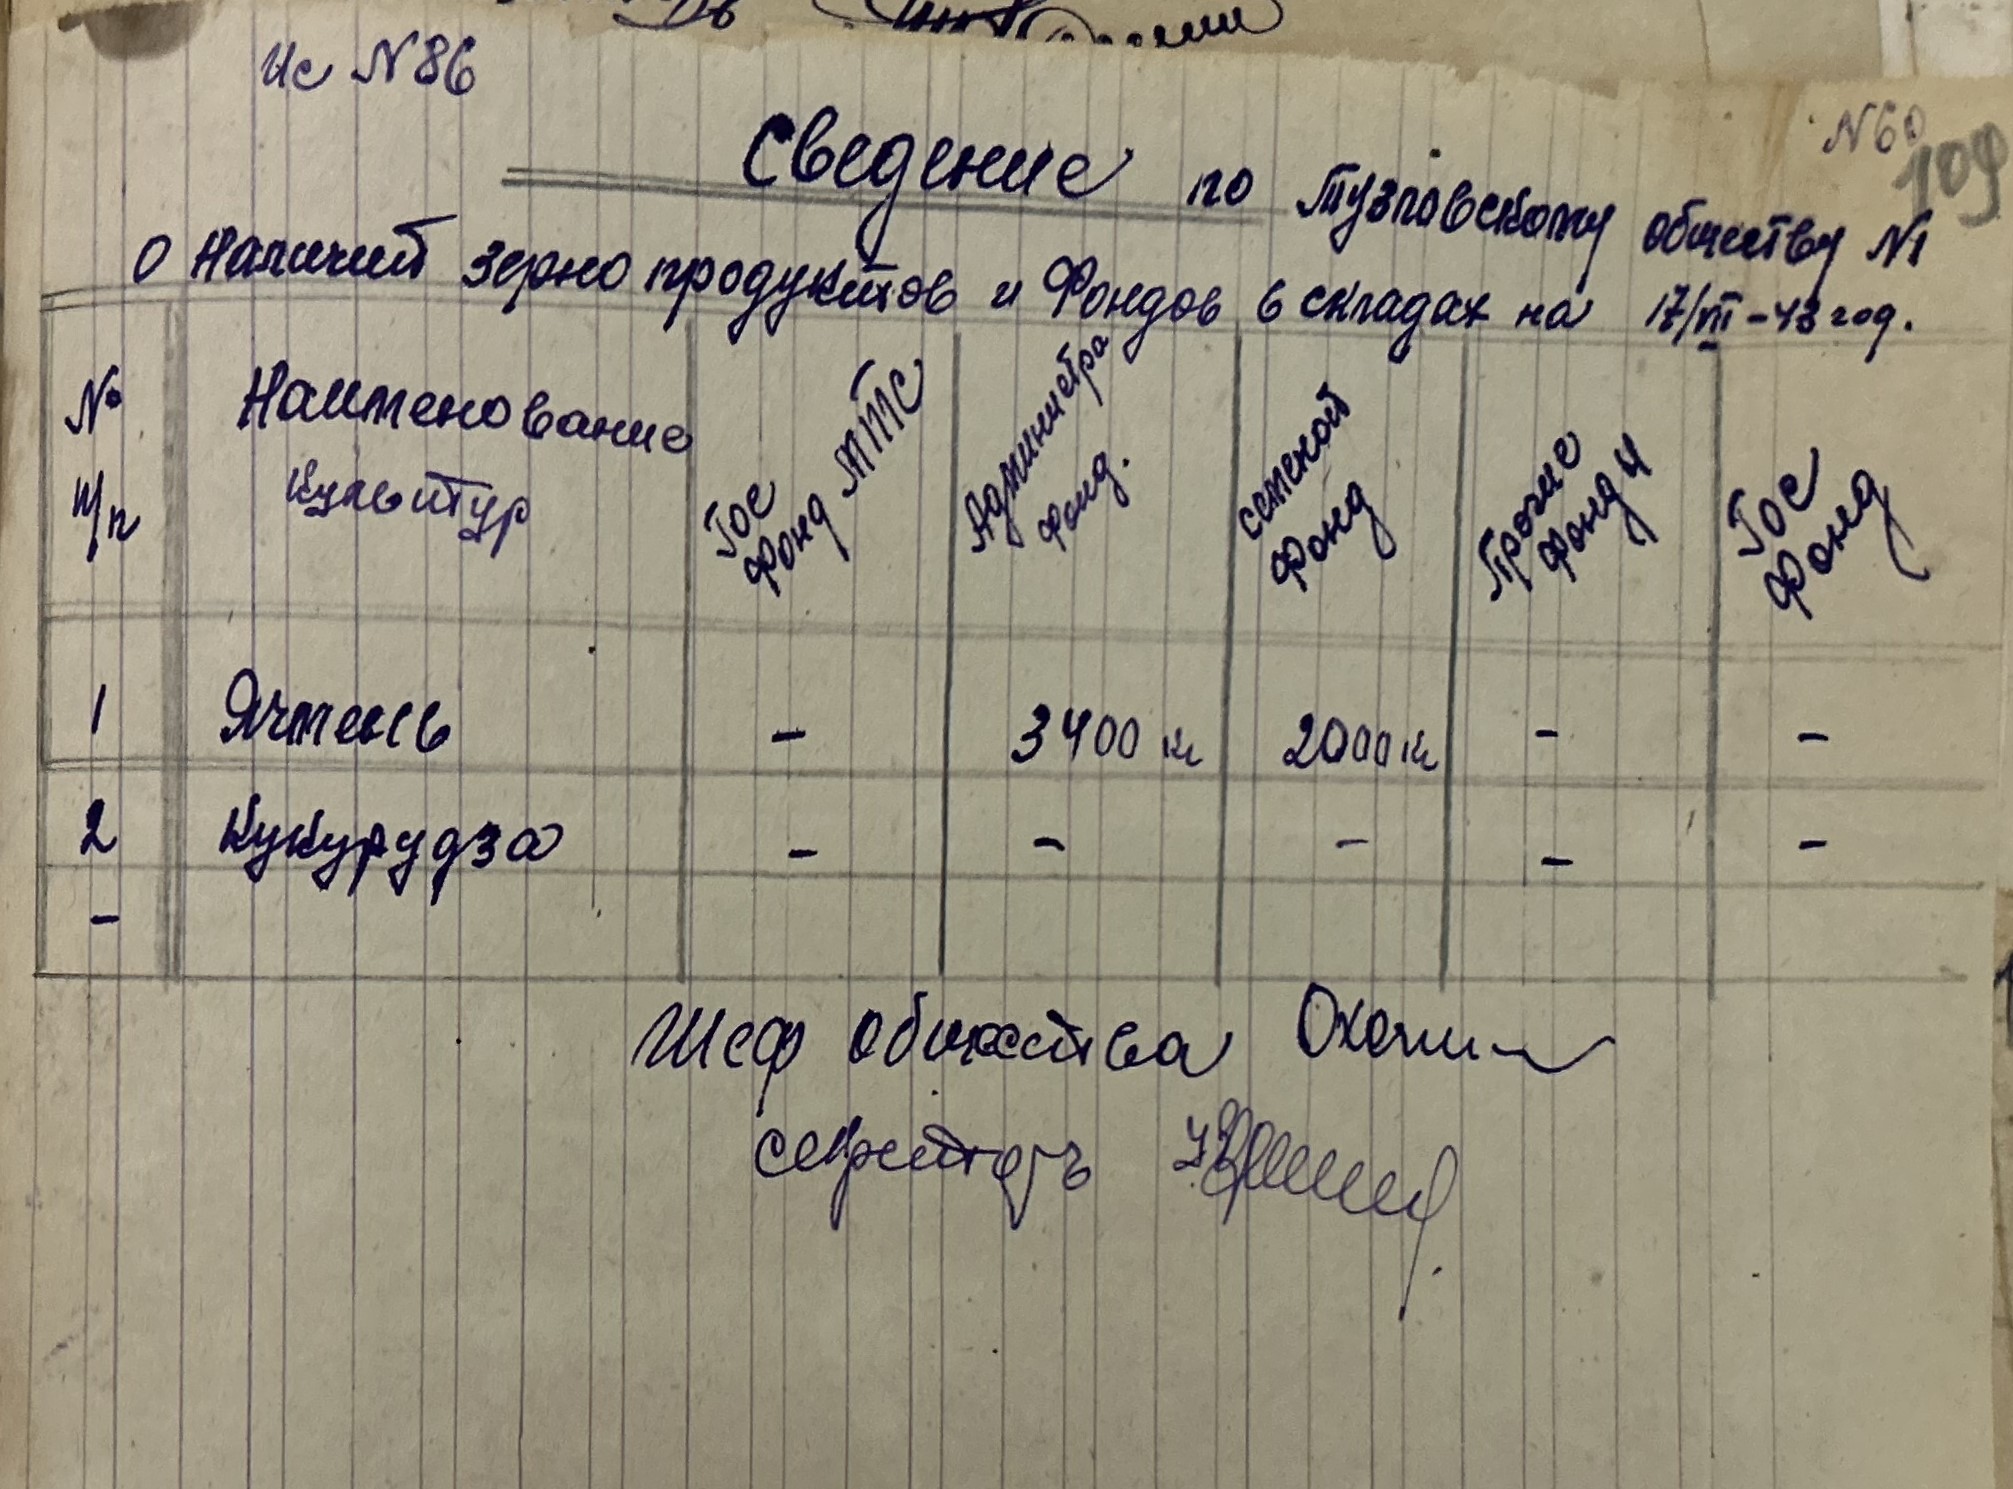 Ис N 86
N 60
109
Сведение по Тузловскому обществу N1
о Наличий зерно продуктов и Фондов в складах на 17/VII-43 год.
№ п/п Наименование культур Гос фонд МТС Администра фонд. семеной фонд Прочие фонды Гос фонд
1 Ячмень - 3400 кг 2000 кг - -
2 Кукурудза - - - - -
-
Шеф общества
секретарь